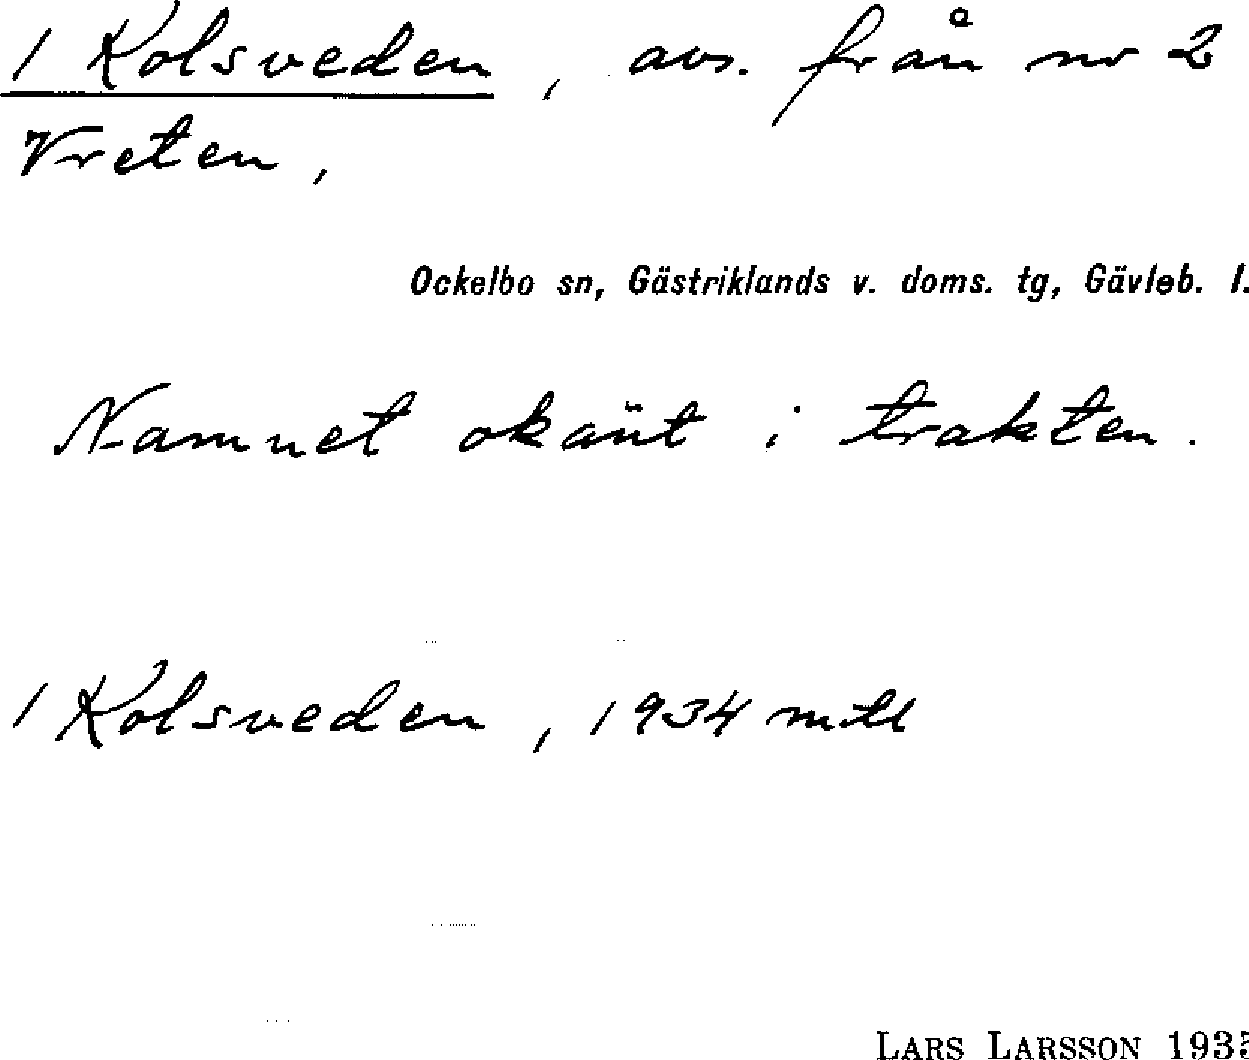 1 Kolsveden, avs. från nr 2
Vreten,
Ockelbo sn, Gästriklands v. doms. tg, Gävleb. l.
Namnet okänt i trakten.
1 Kolsveden, 1934 mtl
LARS LARSSON